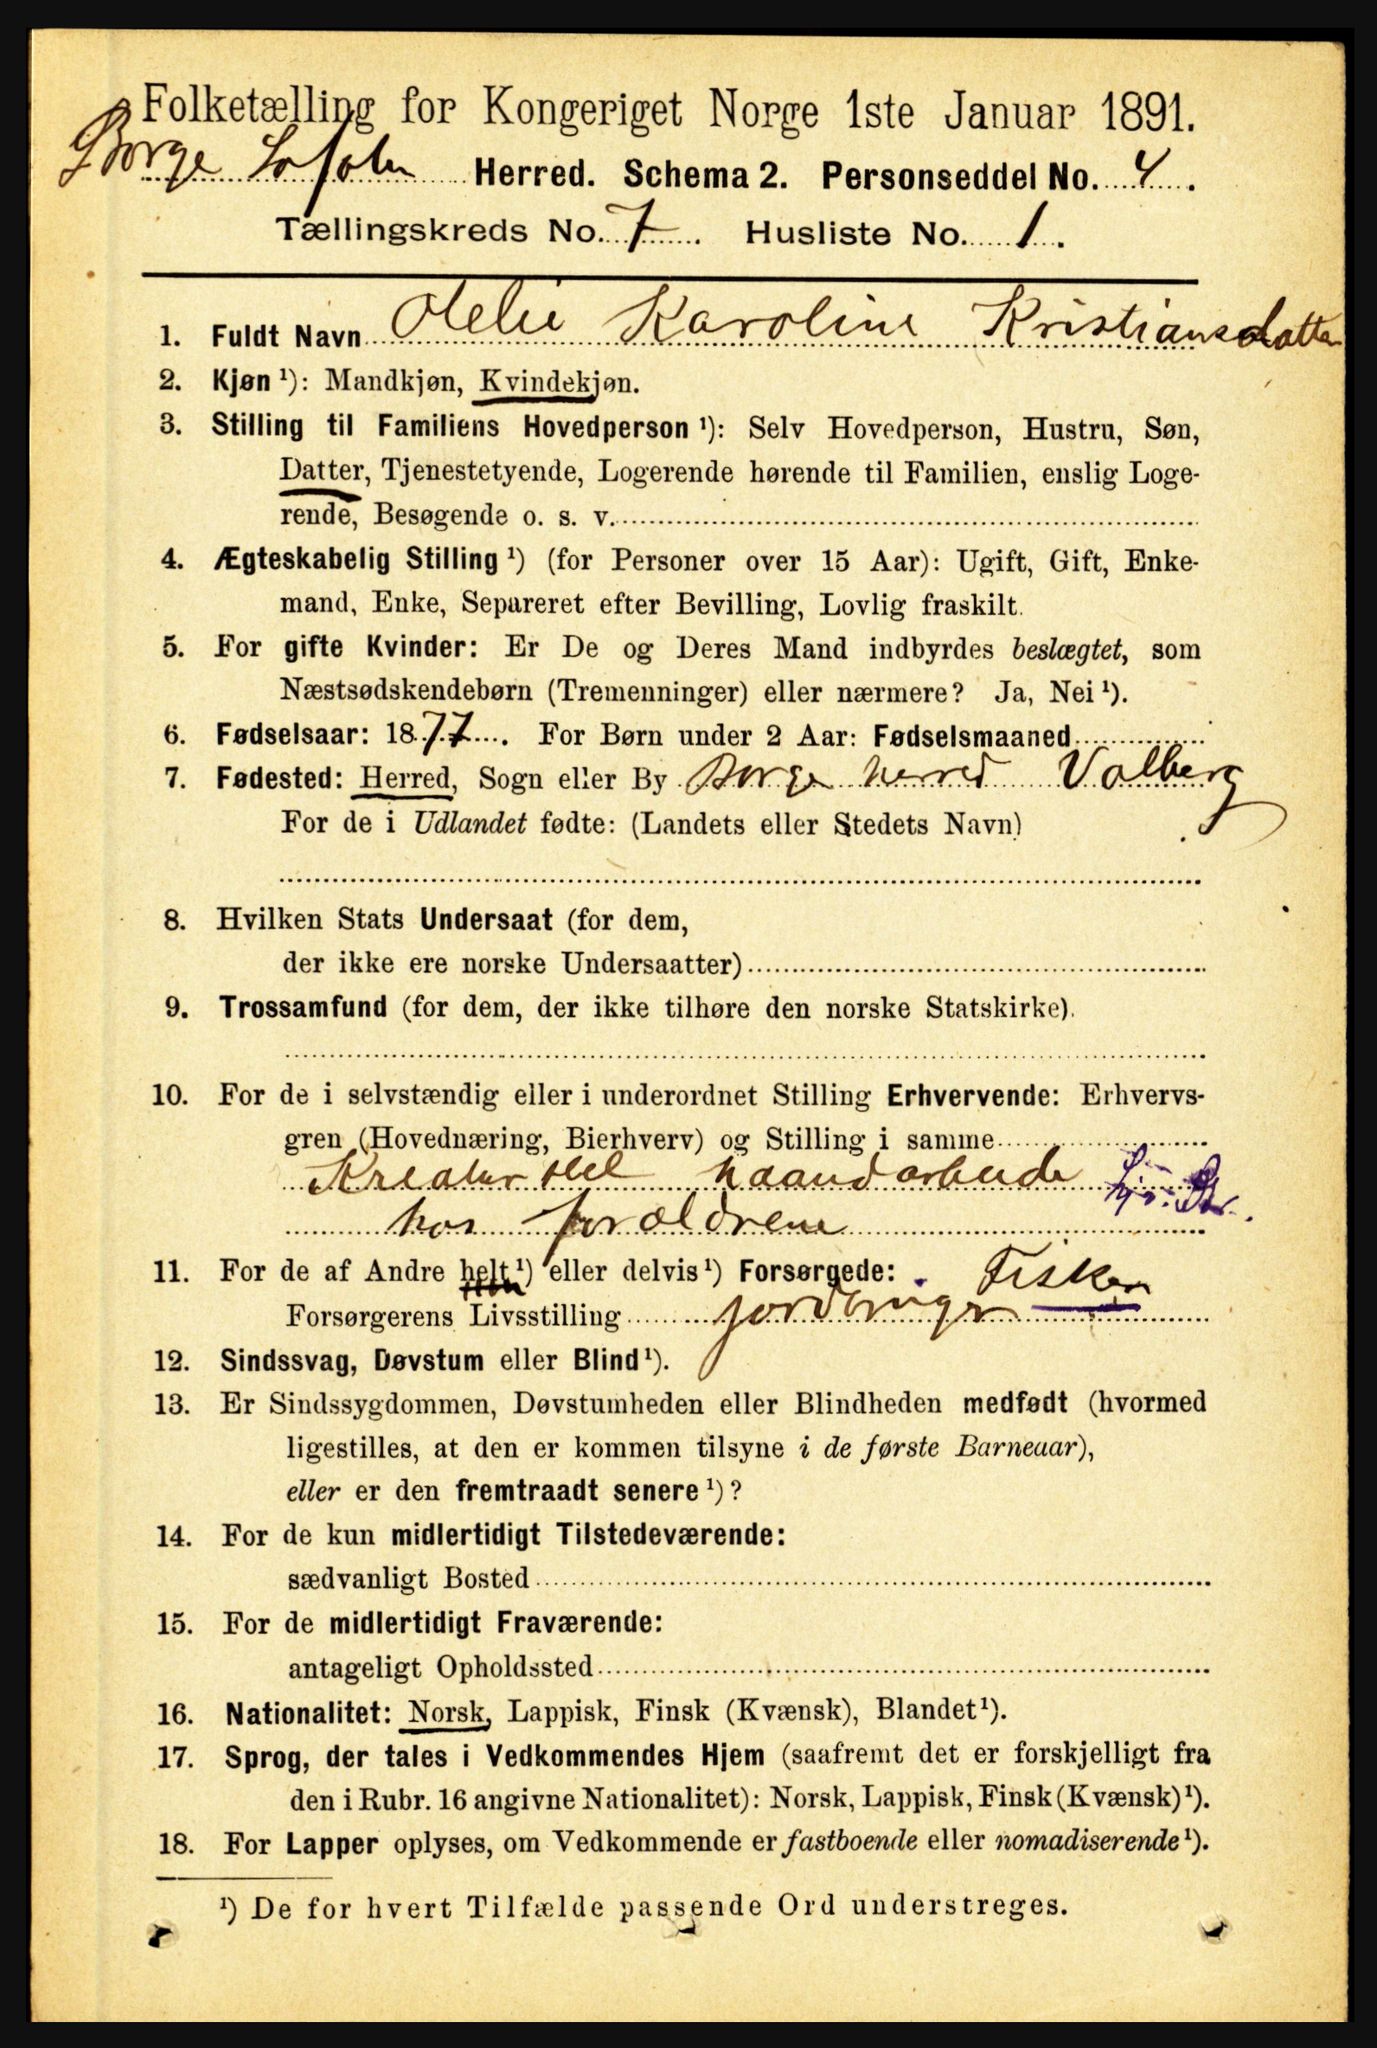 Folketælling for Kongeriget Norge 1ste Januar 1891.
Borge Lofoten Herred. Schema 2. Personseddel No. 4.
Tællingskreds No. 7. Husliste No. 1.
1. Fuldt Navn Olelie Karoline Kristiansdatter
2. Kjøn ¹): Mandkjøn, Kvindekjøn.
3. Stilling til Familiens Hovedperson ¹): Selv Hovedperson, Hustru, Søn,
Datter, Tjenestetyende, Logerende hørende til Familien, enslig Loge-
rende, Besøgende o. s. v.
4. Ægteskabelig Stilling ¹) (for Personer over 15 Aar): Ugift, Gift, Enke-
mand, Enke, Separeret efter Bevilling, Lovlig fraskilt.
5. For gifte Kvinder: Er De og Deres Mand indbyrdes beslægtet, som
Næstsødskendebørn (Tremenninger) eller nærmere? Ja, Nei ¹).
6. Fødselsaar: 1877. For Børn under 2 Aar: Fødselsmaaned
7. Fødested: Herred, Sogn eller By Borge herred Valberg
For de i Udlandet fødte: (Landets eller Stedets Navn)
8. Hvilken Stats Undersaat (for dem,
der ikke ere norske Undersaatter)
9. Trossamfund (for dem, der ikke tilhøre den norske Statskirke).
10. For de i selvstændig eller i underordnet Stilling Erhvervende: Erhvervs-
gren (Hovednæring, Bierhverv) og Stilling i samme
Kreaturstel haandarbeide
hos forældrene
11. For de af Andre helt ¹) eller delvis ¹) Forsørgede: Fisker
Forsørgerens Livsstilling jordbruger
12. Sindssvag, Døvstum eller Blind ¹).
13. Er Sindssygdommen, Døvstumheden eller Blindheden medfødt (hvormed
ligestilles, at den er kommen tilsyne i de første Barneaar),
eller er den fremtraadt senere ¹)?
14. For de kun midlertidigt Tilstedeværende:
sædvanligt Bosted
15. For de midlertidigt Fraværende:
antageligt Opholdssted
16. Nationalitet: Norsk, Lappisk, Finsk (Kvænsk), Blandet ¹).
17. Sprog, der tales i Vedkommendes Hjem (saafremt det er forskjelligt fra
den i Rubr. 16 angivne Nationalitet): Norsk, Lappisk, Finsk (Kvænsk) ¹).
18. For Lapper oplyses, om Vedkommende er fastboende eller nomadiserende ¹).
¹) De for hvert Tilfælde passende Ord understreges.